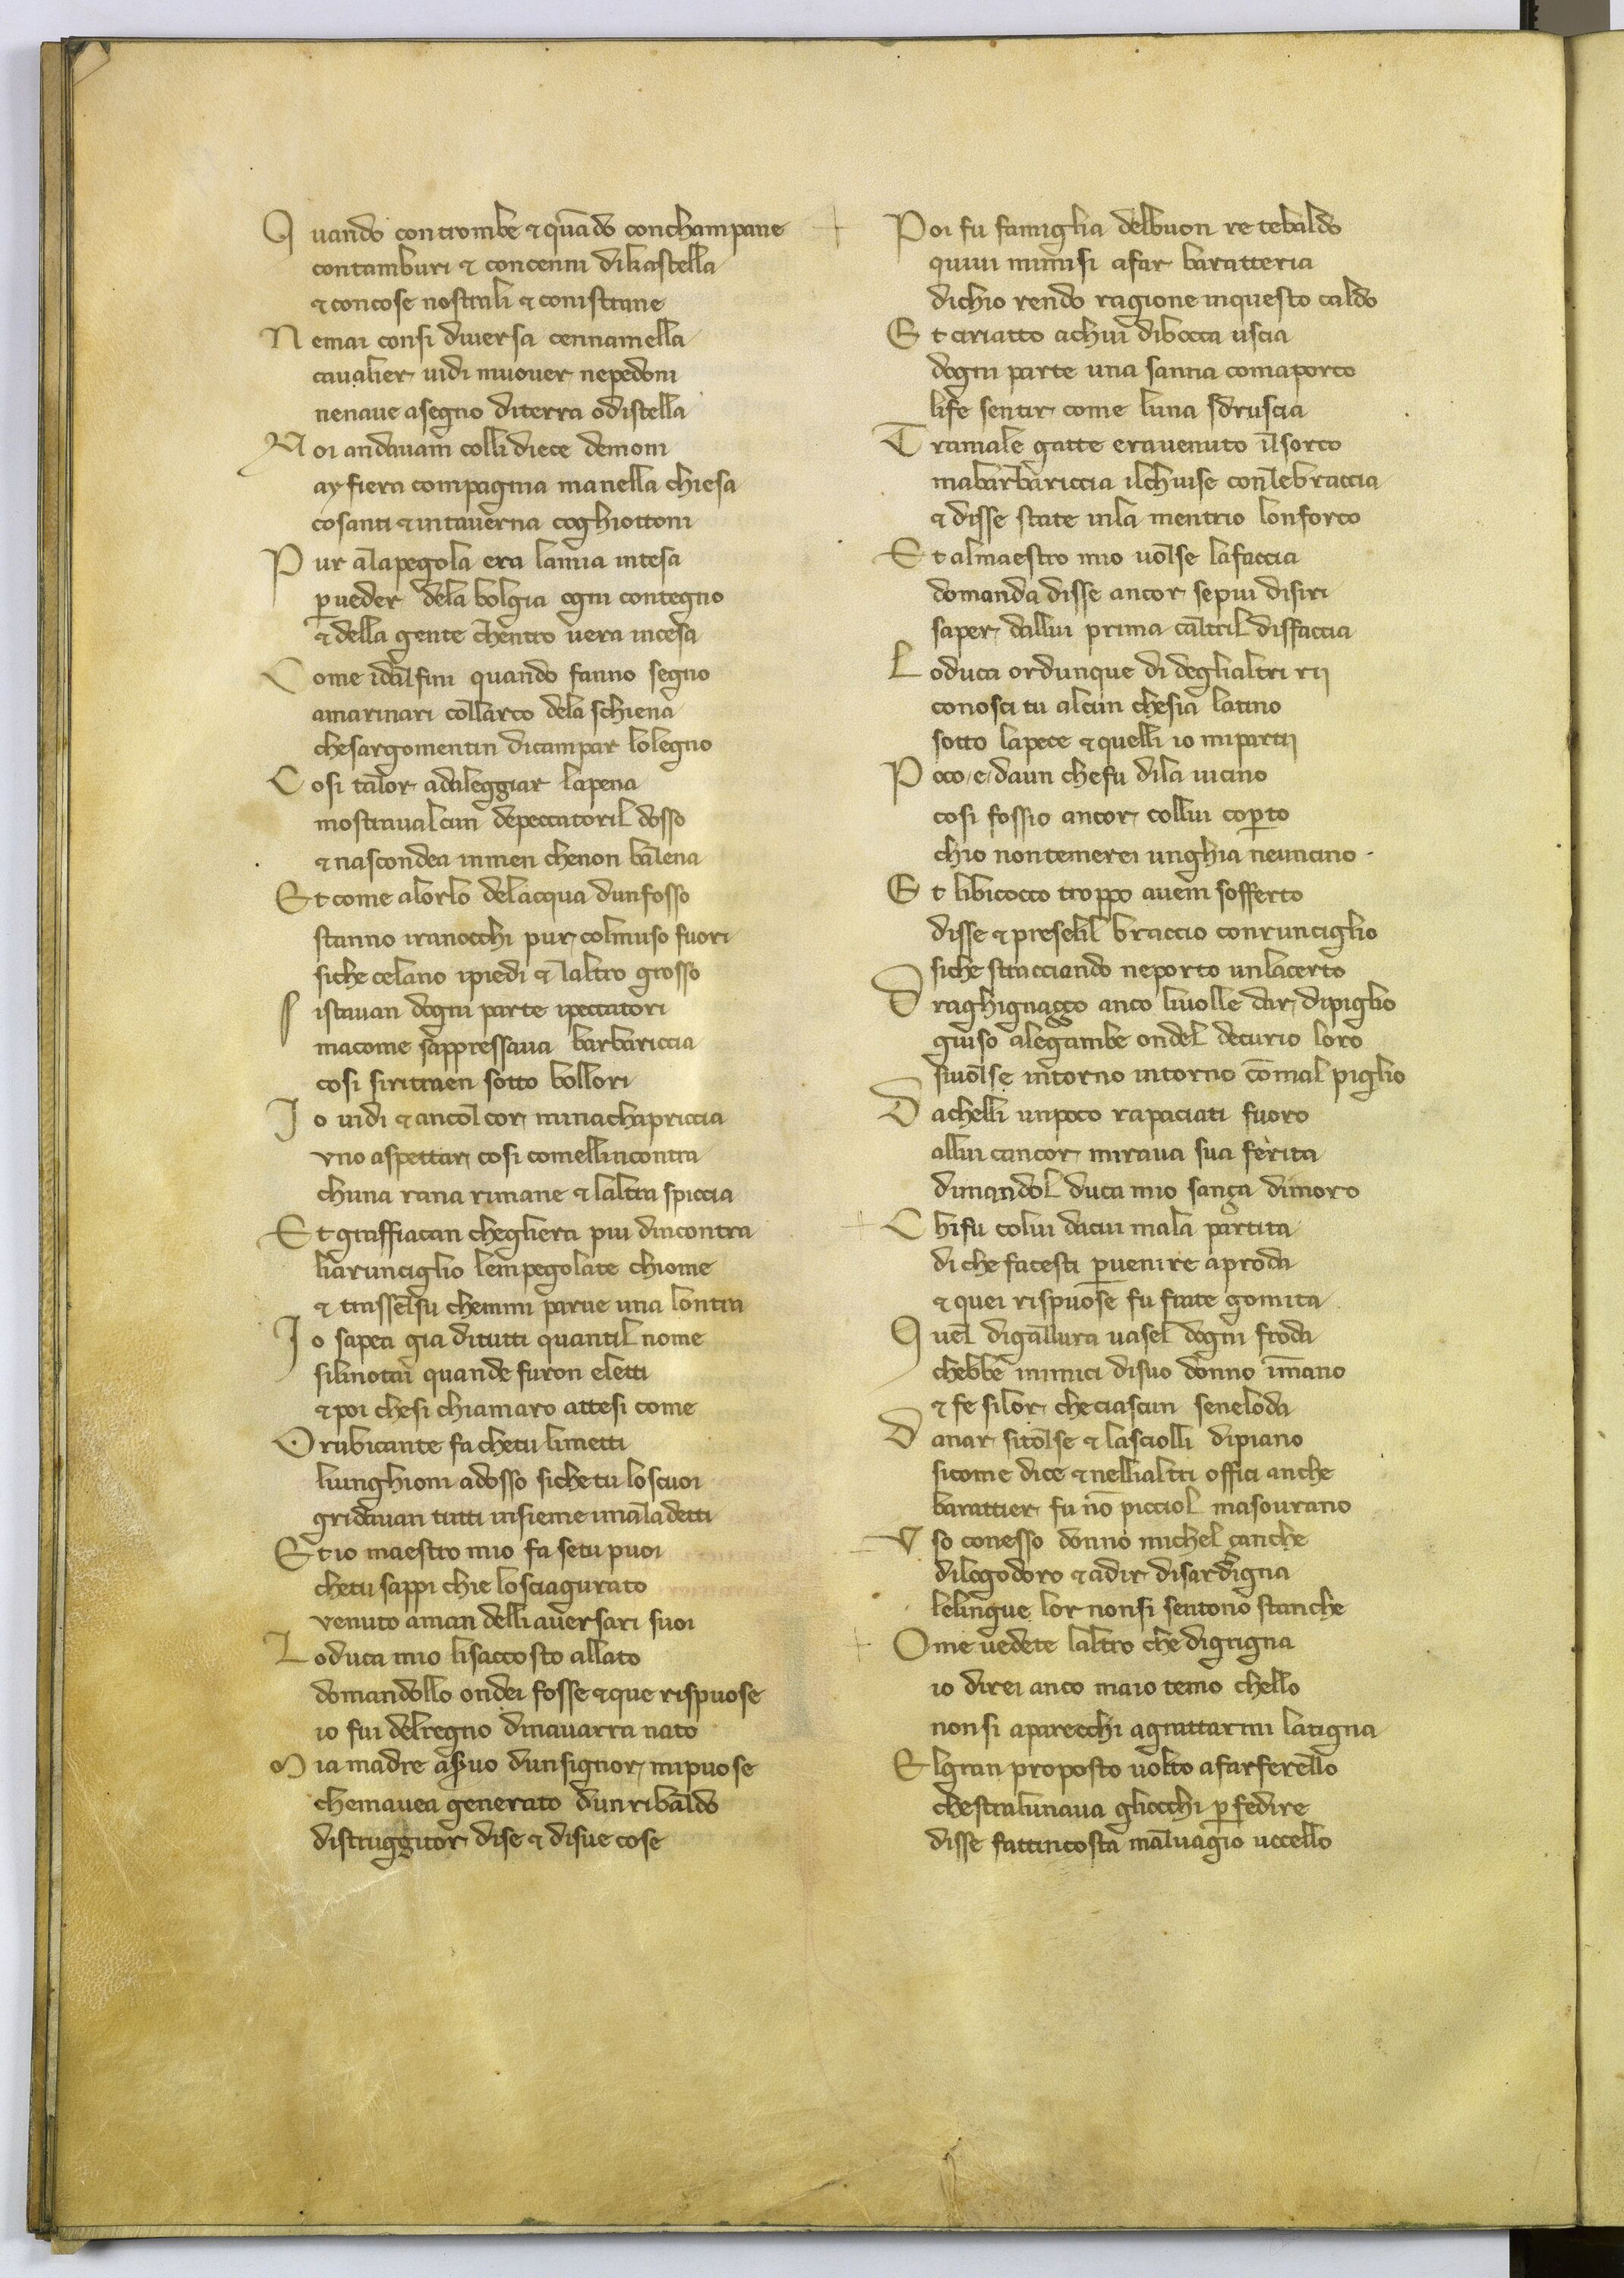 Quando con trombe & quãdo conchampane
contamburi & concenni dikastella
& concose nostrali & conistrane
Nemai consi diversa cennamella
cavalier vidi muover nepedoni
nenave asegno diterra odistella
Noi andavam colli diece demoni
ay fiera compagnia manella chiesa
cosanti & intaverna coghiottoni
Pur alapegola era lamia intesa
p̱ veder dela bolgia ogni contegno
& della gente chentro vera incesa
Come idalfini quando fanno segno
amarinari collarco dela schiena
chesargomentin dicampar lolegno
Cosi talor adaleggiar lapena
mostravalcun depeccatoril dosso
& nascondea inmen chenon balena
Et come alorlo delacqua dunfosso
stanno iranocchi pur colmuso fuori
siche celano ipiedi & laltro grosso
Sistavan dogni parte ipeccatori
macome sappressava barbariccia
cosi siritraen sotto bollori
Io vidi & ancol cor minachapriccia
vno aspettar cosi comellincontra
chuna rana rimane & laltra spiccia
Et graffiacan chegliera piu dincontra
liarunciglio lempegolate chiome
& trasselsu chemmi parve una lontra
Io sapea gia ditutti quantil nome
silinotai quande furon eletti
& poi chesi chiamaro attesi come
O rubicante fa chetu limetti
liunghioni adosso siche tu loscuoi
gridavan tutti insieme imaladetti
Et io maestro mio fa setu puoi
chetu sappi chie losciagurato
venuto aman delli aversari suoi
Loduca mio lisaccosto allato
domandollo ondei fosse & que rispuose
io fui delregno dinavarra nato
Mia madre aservo dunsignor mipuose
chemavea generato dunribaldo
distruggitor dise & disue cose
Poi fu famiglia delbuon re tebaldo
quivi mimisi afar baratteria
dichio rendo ragione inquesto caldo
Et ciriatto achui dibocca uscia
dogni parte una sanna comaporco
life sentir come luna sdruscia
Tramale gatte eravenuto ilsorco
mabarbariccia ilchiuse conlebraccia
& disse state inla mentrio lonforco
Et almaestro mio volse lafaccia
domanda disse ancor sepiu disiri
saper dallui prima caltril diffaccia
Loduca ordunque di deglialtri rij
conosci tu alcun chesia latino
sotto lapece & quelli io mipartij
Poco/e/daun chefu dila vicino
cosi fossio ancor collui cop̱to
chio nontemerei unghia neuncino
Et libicocco troppo avem sofferto
disse & preselil braccio conrunciglio
siche stracciando neporto unlacerto
Draghignaçço anco livolle dar dipiglio
giuso alegambe ondel decurio loro
sivolse intorno intorno cõmal piglio
Dachelli unpoco rapaciati fuoro
allui cancor mirava sua ferita
dimandol duca mio sança dimoro
Chifu colui dacui mala partita
di che facesti p̱ venire aproda
& quei rispuose fu frate gomita
Quel digallura vasel dogni froda
chebbe inimici disuo donno ĩmano
& fe silor checiascun seneloda
Danar sitolse & lasciolli dipiano
sicome dice & nellialtri offici anche
barattier fu nõ picciol masovrano
Vso conesso donno michel çanche
dilogodoro & adir disardigna
lelingue lor nonsi sentono stanche
Ome vedete laltro che digrigna
io direi anco maio temo chello
nonsi aparecchi agrattarmi latigna
Elgran proposto volto afarferello
chestralunava gliocchi p̱ fedire
disse fattincosta malvagio uccello